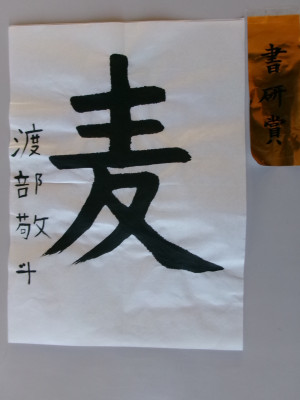 麦
渡部敬斗
書研賞